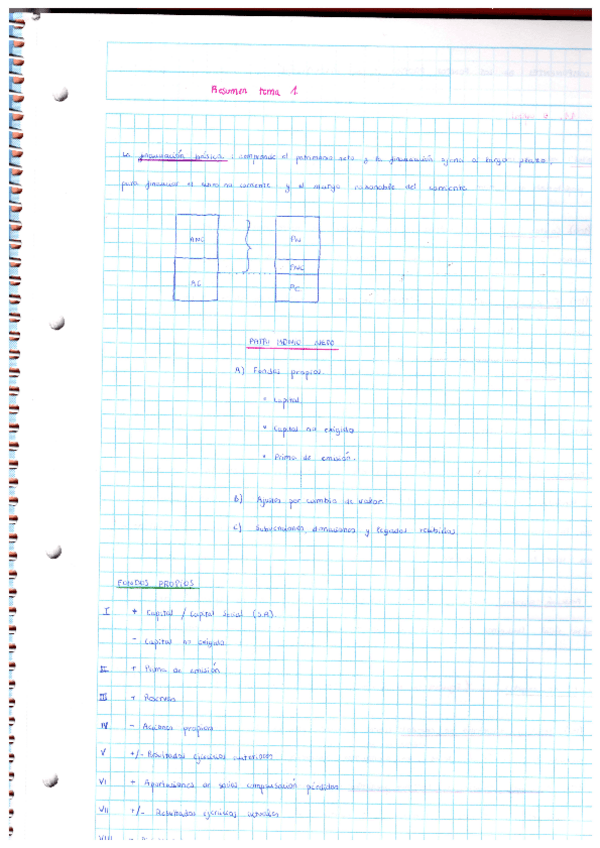 Resumen tema 1
La financiación básica: comprende el patrimonio neto y la financiación ajena a largo plazo,
para financiar el activo no corriente y el margen razonable del corriente
ANC
PN
PNC
AC
PC
PATRIMONIO NETO
A) Fondos propios.
* Capital
* Capital no exigido
* Prima de emisión.
B) Ajustes por cambio de valor.
C) Subvenciones, donaciones y legados recibidos.
FONDOS PROPIOS
I + Capital / Capital social (S.A).
- Capital no exigido
II + Prima de emisión
III + Reservas
IV - Acciones propias
V +/- Resultados ejercicios anteriores
VI + Aportaciones de socios compensación pérdidas
VII +/- Resultados ejercicios
VIII